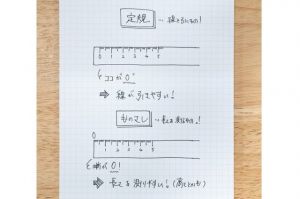 定規 … 線を引くもの!
0 1 2 3 4 5
ココが0!
⇒ 線が引きやすい!
ものさし … 長さを測るもの!
0
1 2 3 4 5
端が0!
⇒ 長さを測りやすい!(高さとかも)